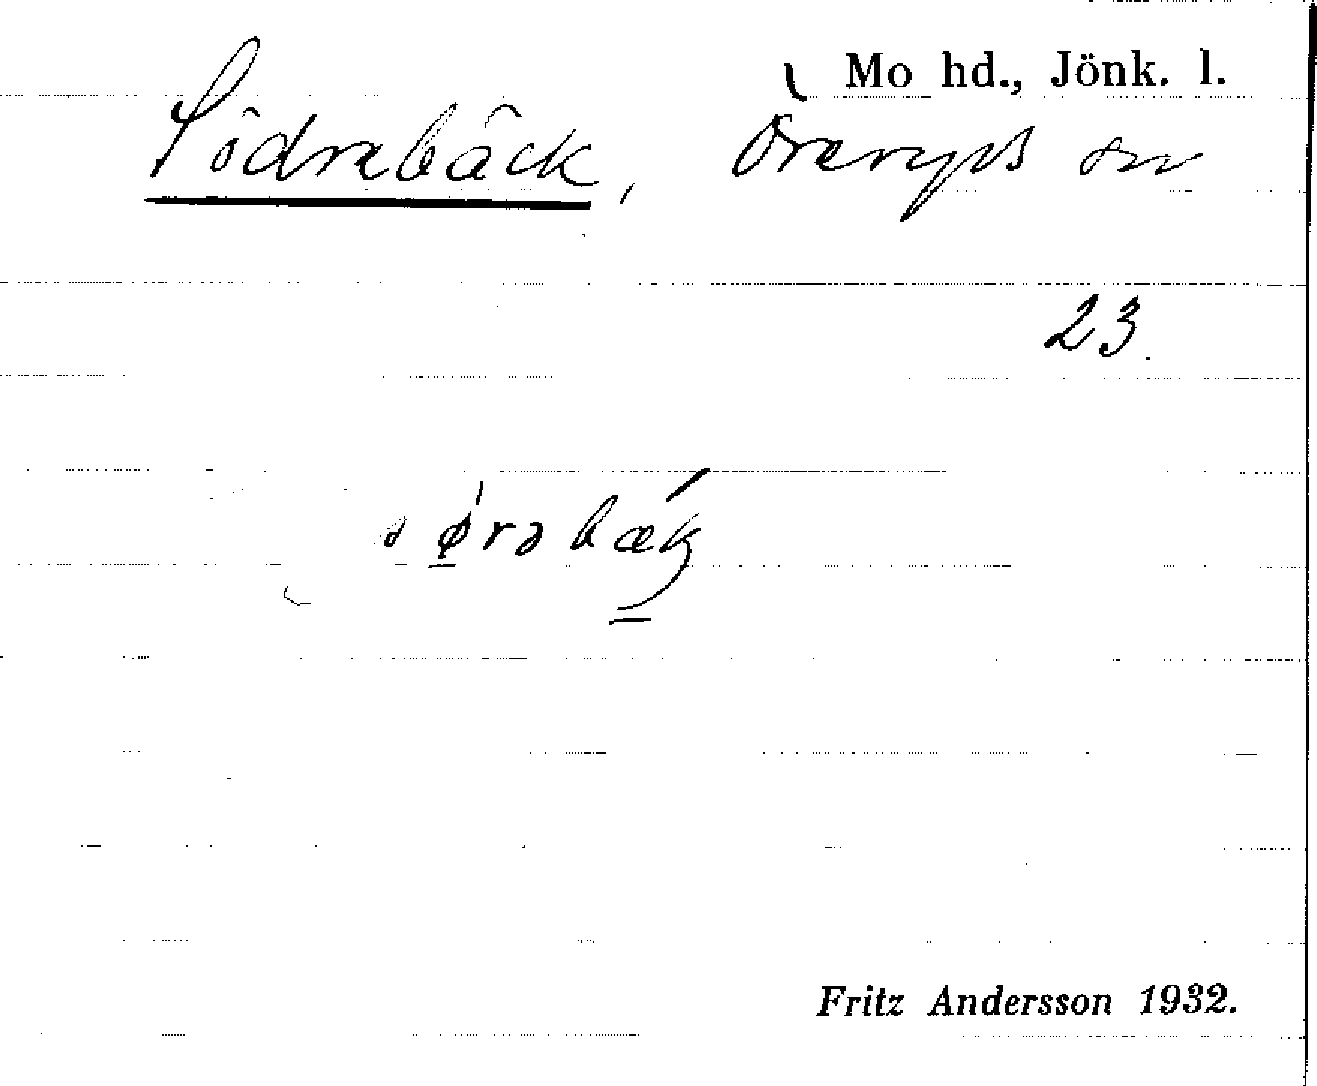 Mo hd., Jönk. l.
Södrabäck, Öreryds sn
23.
sørəbæk
Fritz Andersson 1932.